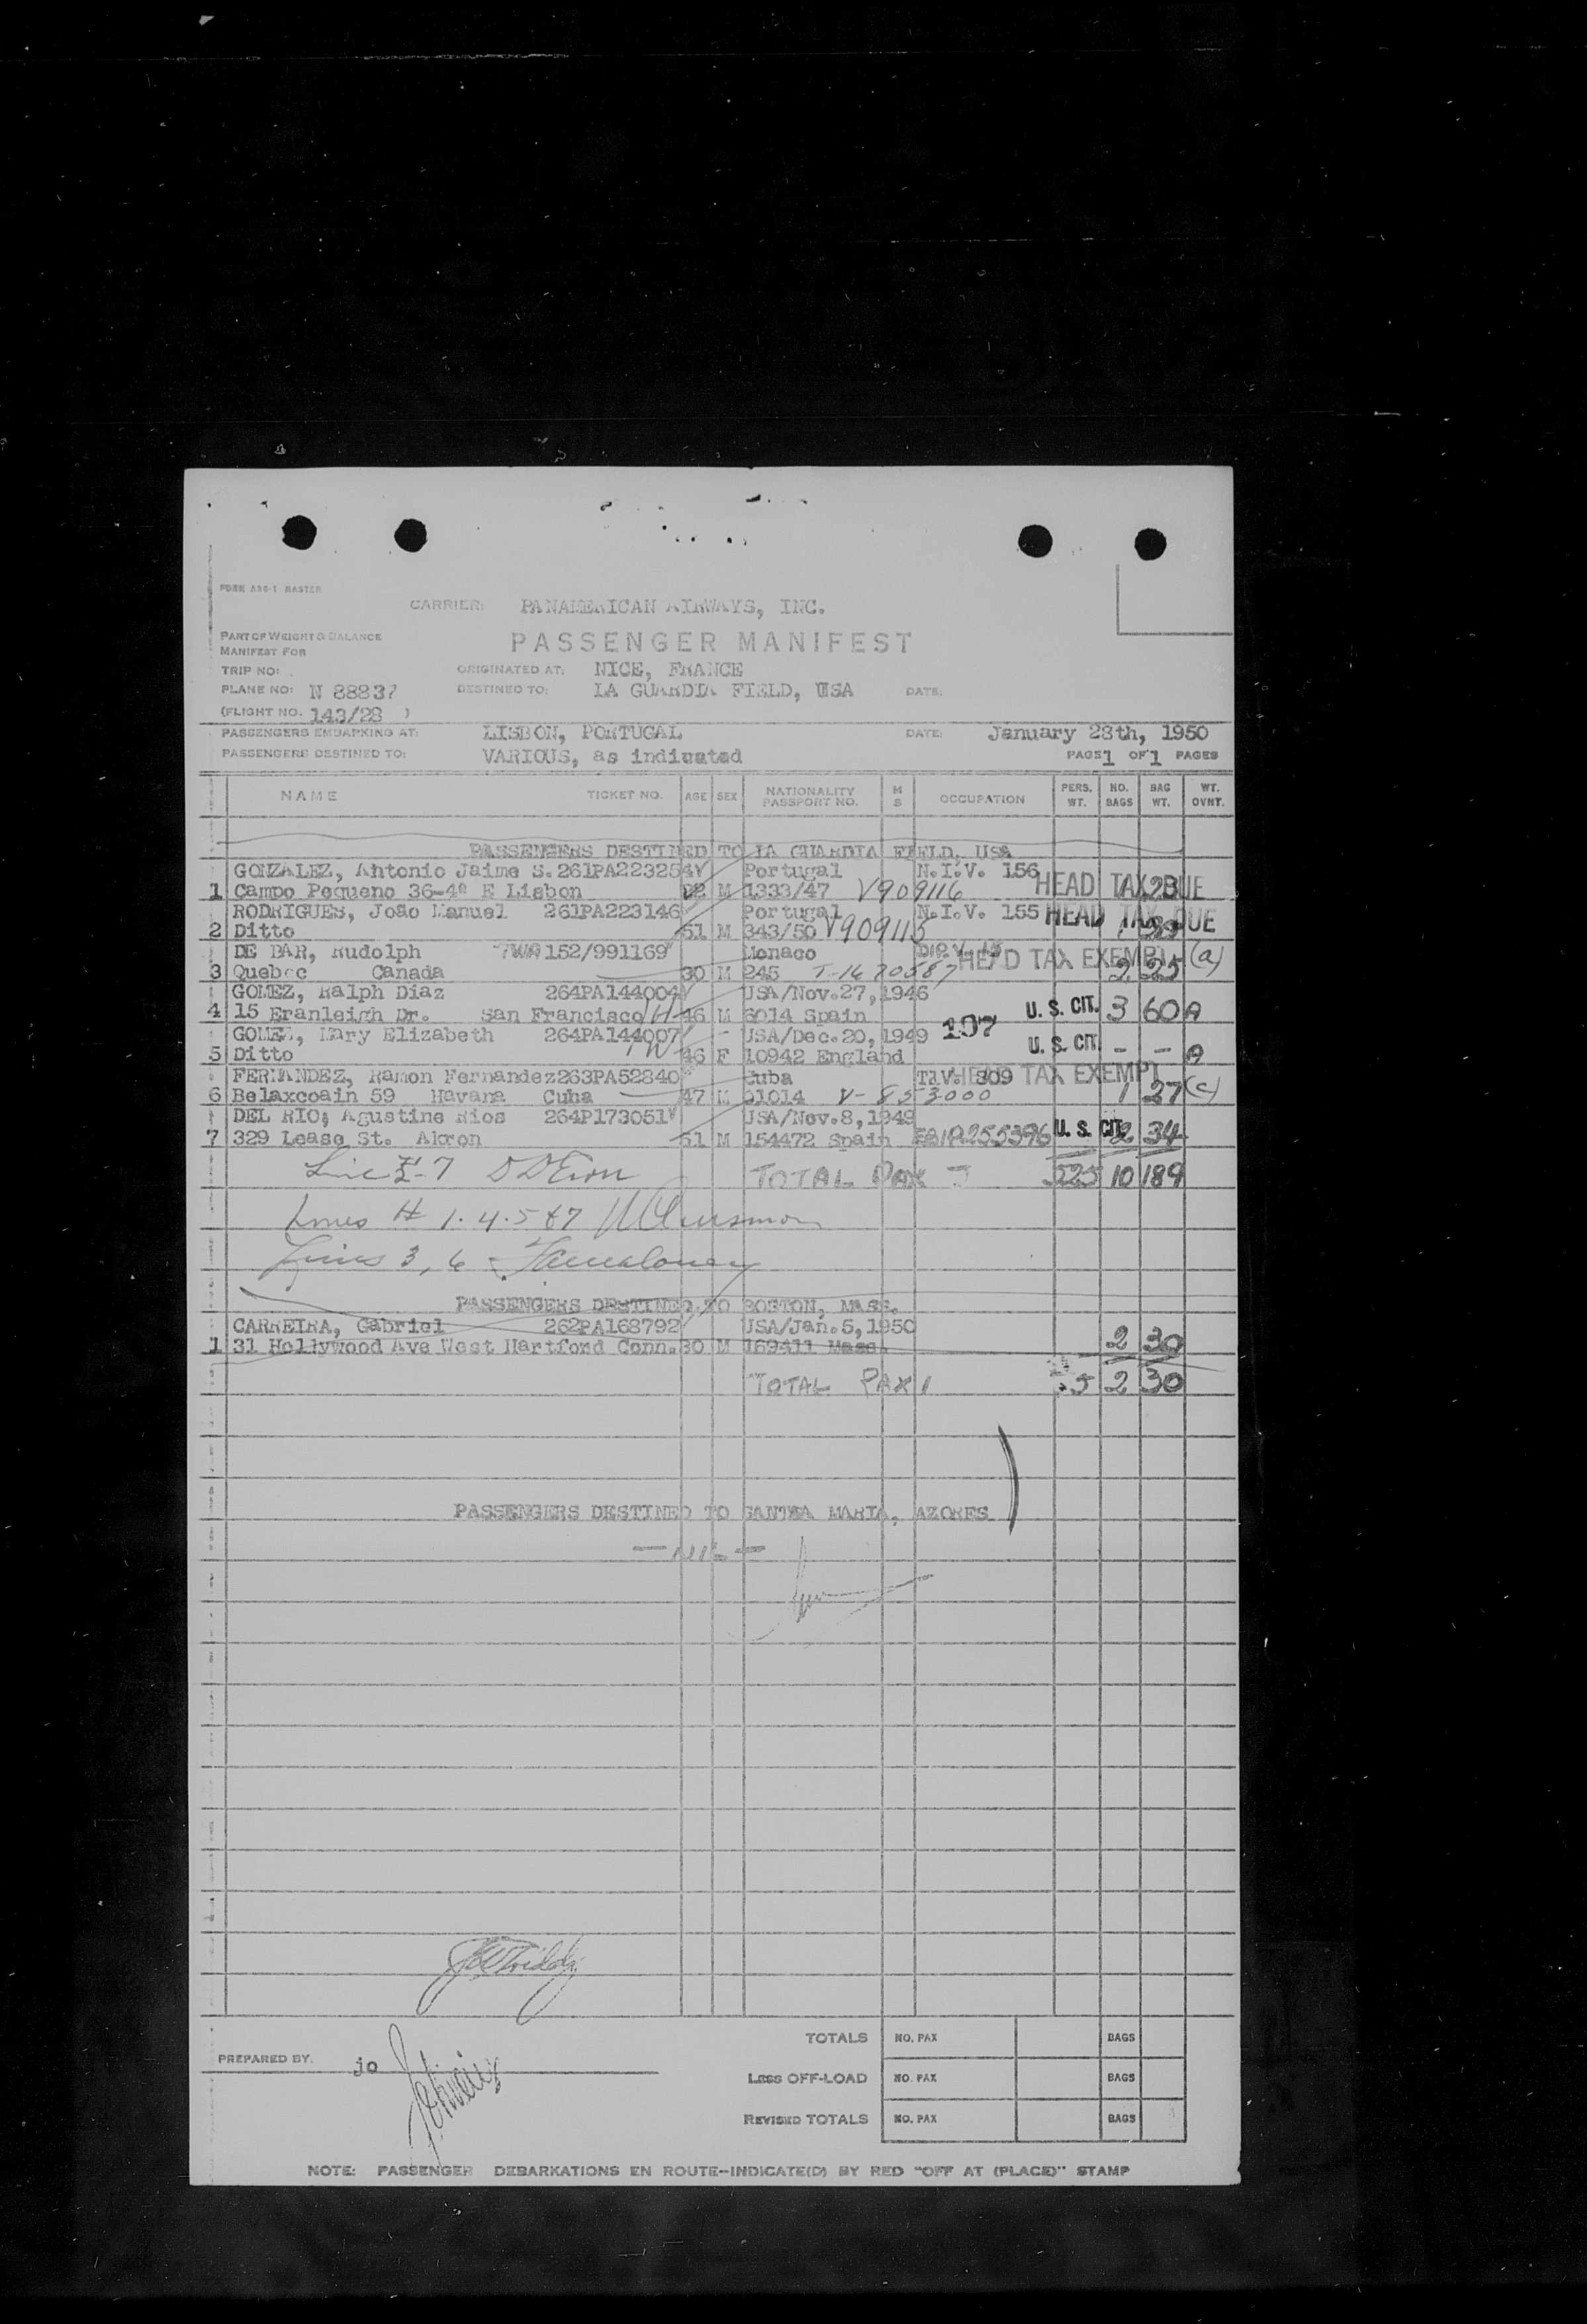 FORM A36-1 MASTER
CARRIER: PANAMERICAN AIRWAYS, INC.
PART OF WEIGHT & BALANCE
MANIFEST FOR
PASSENGER MANIFEST
TRIP NO: ORIGINATED AT: NICE, FRANCE
PLANE NO: N 88837 DESTINED TO: LA GUARDIA FIELD, USA DATE:
(FLIGHT NO. 143/28 )
PASSENGERS EMBARKING AT: LISBON, PORTUGAL DATE: January 28th, 1950
PASSENGERS DESTINED TO: VARIOUS, as indicated PAGE 1 OF 1 PAGES
NAME TICKET NO. AGE SEX NATIONALITY PASSPORT NO. M S OCCUPATION PERS. WT. NO. BAGS BAG WT. WT. OVNT.
PASSENGERS DESTINED TO LA GUARDIA FIELD, USA
GONZALEZ, Antonio Jaime S. 261PA223254 Portugal N.I.V. 156
1 Campo Pequeno 36-4º E Lisbon M 1333/47 V909116 HEAD TAX DUE
RODRIGUES, João Manuel 261PA223146 Portugal N.I.V. 155 HEAD TAX DUE
2 Ditto 51 M 343/50 V909115
DE BAR, Rudolph 152/991169 Monaco HEAD TAX EXEMPT (a)
3 Quebec Canada 30 M 245 2 25
GOMEZ, Ralph Diaz 264PA144004 USA/Nov.27,1946
4 15 Eranleigh Dr. San Francisco H 46 M 6014 Spain U. S. CIT. 3 60 A
GOMEZ, Mary Elizabeth 264PA144007 USA/Dec.20,1949 107
5 Ditto W 46 F 10942 England U. S. CIT. - - A
FERNANDEZ, Ramon Fernandez 263PA52840 Cuba 309 HEAD TAX EXEMPT
6 Belaxcoain 59 Havana Cuba 47 M 21014 V-853000 1 27 (c)
DEL RIO, Agustine Rios 264P173051 USA/Nov.8,1949
7 329 Lease St. Akron 51 M 154472 Spain U. S. CIT. 2 34
TOTAL PAX 7 10 189
Lines # 1.4.5 & 7
Lines 3, 6
PASSENGERS DESTINED TO BOSTON, MASS.
CARREIRA, Gabriel 262PA168792 USA/Jan.5,1950
1 31 Hollywood Ave West Hartford Conn. 30 M 169411 Mass. 2 30
TOTAL PAX 1 2 30
PASSENGERS DESTINED TO SANTA MARIA, AZORES
— NIL —
TOTALS NO. PAX BAGS
PREPARED BY: jo
LESS OFF-LOAD NO. PAX BAGS
REVISED TOTALS NO. PAX BAGS
NOTE: PASSENGER DEBARKATIONS EN ROUTE-INDICATE(D) BY RED "OFF AT (PLACE)" STAMP